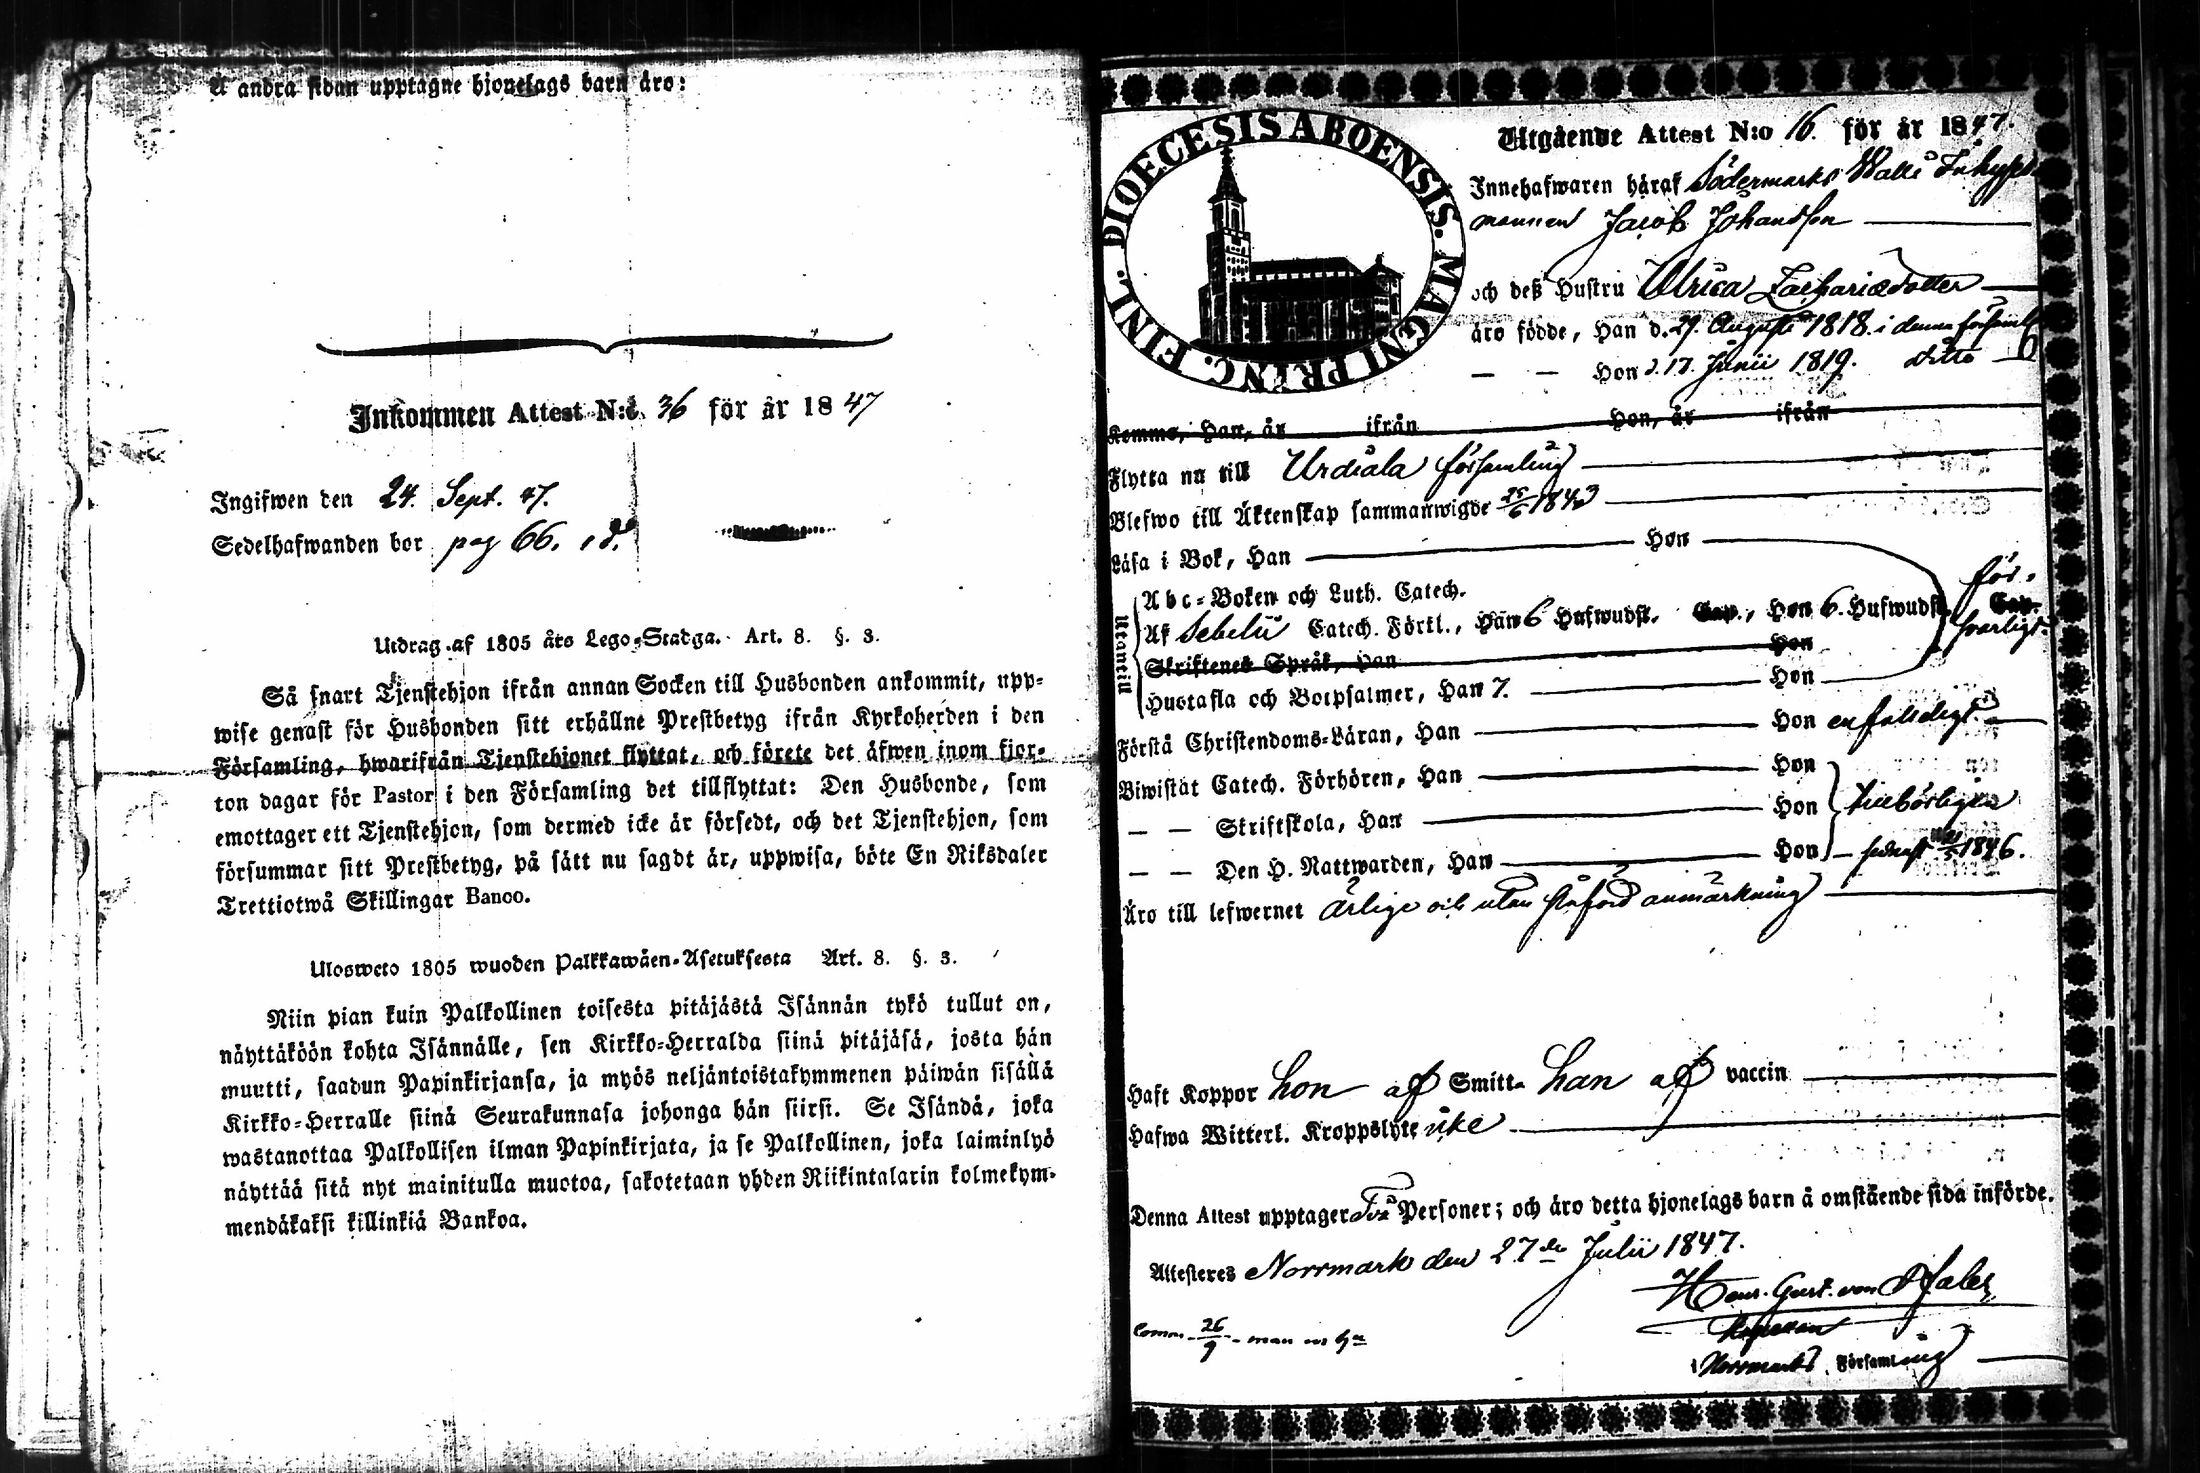 Å andra sidan upptagne hjonelags barn äro:
Inkommen Attest N:o 36 för år 1847
Ingifwen den 24. Sept. 47.
Sedelhafwanden bor pag 66.
Utdrag af 1805 års Lego-Stadga. Art. 8. §. 3.
Så snart Tjenstehjon ifrån annan Socken till Husbonden ankommit, upp-
wise genast för Husbonden sitt erhållne Prestbetyg ifrån Kyrkoherden i den
Församling, hwarifrån Tjenstehjonet flyttat, och förete det äfwen inom fjor-
ton dagar för Pastor i den Församling det tillflyttat: Den Husbonde, som
emottager ett Tjenstehjon, som dermed icke är försedt, och det Tjenstehjon, som
försummar sitt Prestbetyg, på sätt nu sagdt är, uppwisa, böte En Riksdaler
Trettiotwå Skillingar Banco.
Ulosweto 1805 wuoden Palkkawäen-Asetuksesta Art. 8. §. 3.
Niin pian kuin Palkollinen toisesta pitäjästä Isännän tykö tullut on,
näyttäköön kohta Isännälle, sen Kirkko-Herralda siinä pitäjäsä, josta hän
muutti, saadun Papinkirjansa, ja myös neljäntoistakymmenen päiwän sisällä
Kirkko-Herralle siinä Seurakunnasa johonga hän siirsi. Se Isändä, joka
wastanottaa Palkollisen ilman Papinkirjata, ja se Palkollinen, joka laiminlyö
näyttää sitä nyt mainitulla muotoa, sakotetaan yhden Riikintalarin kolmekym-
mendäkaksi killinkiä Bankoa.
DIOECESIS ABOENSIS. MAGNI PRINC. FINL.
Utgående Attest N:o 16. för år 1847.
Innehafwaren häraf Södermarks Inhyses
mannen Jacob Johansson
och deß Hustru Ulrica Zachariædotter
äro födde, Han d. 27. Augusti 1818. i denna församl
— — Hon d. 17. Junii 1819. ditto
Komme, Han, år ifrån Hon, år ifrån
Flytta nu till Urdiala församling
Blefwo till Äktenskap sammanwigde 25/6 1843
Läsa i Bok, Han Hon
Utantill
Abc-Boken och Luth. Catech.
Af Sebelii Catech. Förkl., Han 6 Hufwudst. Cap., Hon 6. Hufwudst. Cap.
för-
svarligt.
Skriftenes Språk, Han Hon
Hustafla och Botpsalmer, Han 7. Hon
Förstå Christendoms-Läran, Han Hon enfaldigt.
Biwistat Catech. Förhören, Han Hon
— — Skriftskola, Han Hon tillbörligen
— — Den H. Nattwarden, Han Hon senast 1846.
Äro till lefwernet ärlige och utan anmärkning
Haft Koppor hon af Smitta han af vaccin
Hafwa Witterl. Kroppslyte icke
Denna Attest upptager Två Personer; och äro detta hjonelags barn å omstående sida införde.
Attesteres Norrmark den 27de Julii 1847.
Henr. Gust. von Pfaler
Norrmarks Församling
26/9